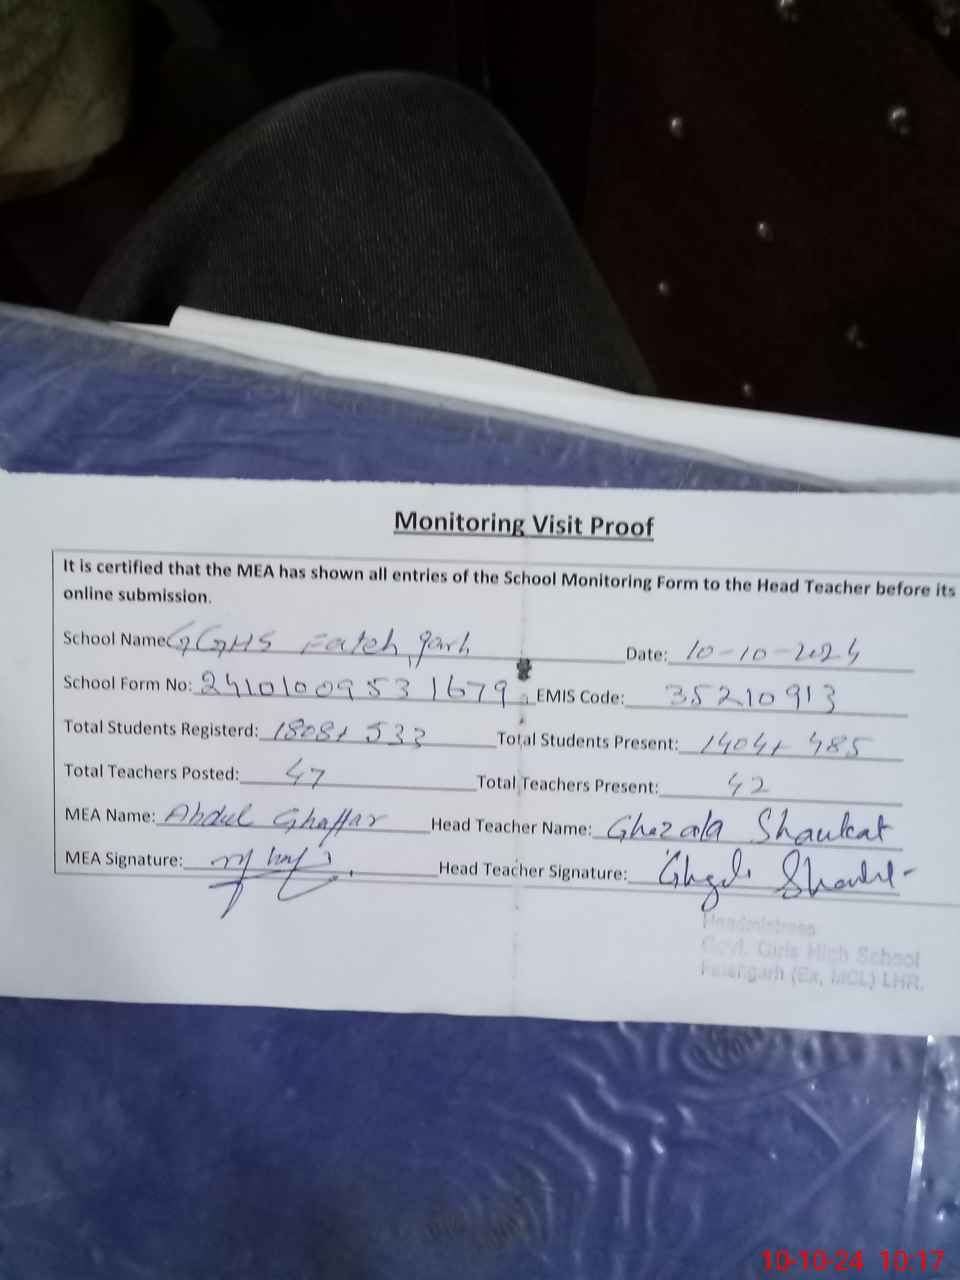 Monitoring Visit Proof
It is certified that the MEA has shown all entries of the School Monitoring Form to the Head Teacher before its
online submission.
School Name GGHS Fateh garh Date: 10-10-2024
School Form No: 2410100953 1679 EMIS Code: 35210913
Total Students Registerd: 1808+ 533 Total Students Present: 1404+ 485
Total Teachers Posted: 47 Total Teachers Present: 42
MEA Name: Abdul Ghaffar Head Teacher Name: Ghazala Shaukat
MEA Signature: Head Teacher Signature:
Headmistress
Govt. Girls High School
Fatehgarh (Ex, MCL) LHR.
10-10-24 10:17